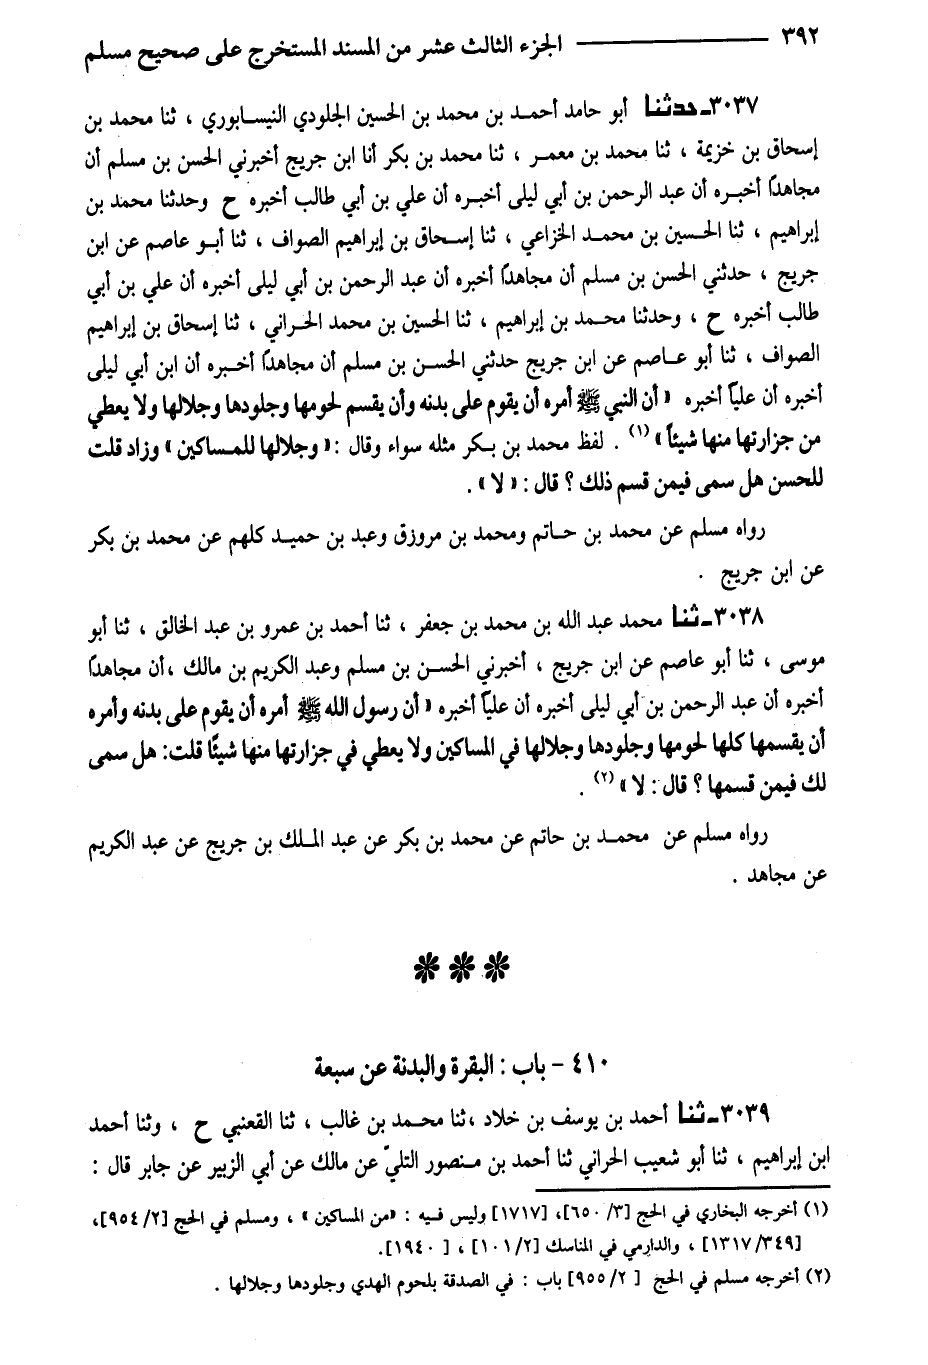 ٣٩٢ ــــــــــــ الجزء الثالث عشر من المسند المستخرج على صحيح مسلم
٣٠٣٧ـ حدثنا أبو حامد أحمد بن محمد بن الحسين الجلودي النيسابوري ، ثنا محمد بن
إسحاق بن خزيمة ، ثنا محمد بن معمر ، ثنا محمد بن بكر أنا ابن جريج أخبرني الحسن بن مسلم أن
مجاهدًا أخبره أن عبد الرحمن بن أبي ليلى أخبره أن علي بن أبي طالب أخبره ح وحدثنا محمد بن
إبراهيم ، ثنا الحسين بن محمد الخزاعي ، ثنا إسحاق بن إبراهيم الصواف ، ثنا أبو عاصم عن ابن
جريج ، حدثني الحسن بن مسلم أن مجاهدًا أخبره أن عبد الرحمن بن أبي ليلى أخبره أن علي بن أبي
طالب أخبره ح ، وحدثنا محمد بن إبراهيم ، ثنا الحسين بن محمد الحراني ، ثنا إسحاق بن إبراهيم
الصواف ، ثنا أبو عاصم عن ابن جريج حدثني الحسن بن مسلم أن مجاهدًا أخبره أن ابن أبي ليلى
أخبره أن عليًا أخبره « أن النبي ﷺ أمره أن يقوم على بدنه وأن يقسم لحومها وجلودها وجلالها ولا يعطي
من جزارتها منها شيئاً » (١) . لفظ محمد بن بكر مثله سواء وقال : « وجلالها للمساكين » وزاد قلت
للحسن هل سمى فيمن قسم ذلك ؟ قال : « لا » .
رواه مسلم عن محمد بن حاتم ومحمد بن مروزق وعبد بن حميد كلهم عن محمد بن بكر
عن ابن جريج .
٣٠٣٨ـ ثنا محمد عبد الله بن محمد بن جعفر ، ثنا أحمد بن عمرو بن عبد الخالق ، ثنا أبو
موسى ، ثنا أبو عاصم عن ابن جريج ، أخبرني الحسن بن مسلم وعبد الكريم بن مالك ،أن مجاهدًا
أخبره أن عبد الرحمن بن أبي ليلى أخبره أن عليًا أخبره « أن رسول الله ﷺ أمره أن يقوم على بدنه وأمره
أن يقسمها كلها لحومها وجلودها وجلالها في المساكين ولا يعطي في جزارتها منها شيئًا قلت: هل سمى
لك فيمن قسمها ؟ قال : لا » (٢) .
رواه مسلم عن محمد بن حاتم عن محمد بن بكر عن عبد الملك بن جريج عن عبد الكريم
عن مجاهد .
٤١٠ - باب : البقرة والبدنة عن سبعة
٣٠٣٩ـ ثنا أحمد بن يوسف بن خلاد ،ثنا محمد بن غالب ، ثنا القعنبي ح ، وثنا أحمد
ابن إبراهيم ، ثنا أبو شعيب الحراني ثنا أحمد بن منصور التليّ عن مالك عن أبي الزبير عن جابر قال :
(١) أخرجه البخاري في الحج [٣/ ٦٥٠]، [١٧١٧] وليس فيه : «من المساكين » ، ومسلم في الحج [٢/ ٩٥٤]،
[٣٤٩/ ١٣١٧] ، والدارمي في المناسك [٢/ ١٠١] ، [ ١٩٤٠].
(٢) أخرجه مسلم في الحج [ ٢/ ٩٥٥] باب : في الصدقة بلحوم الهدي وجلودها وجلالها .